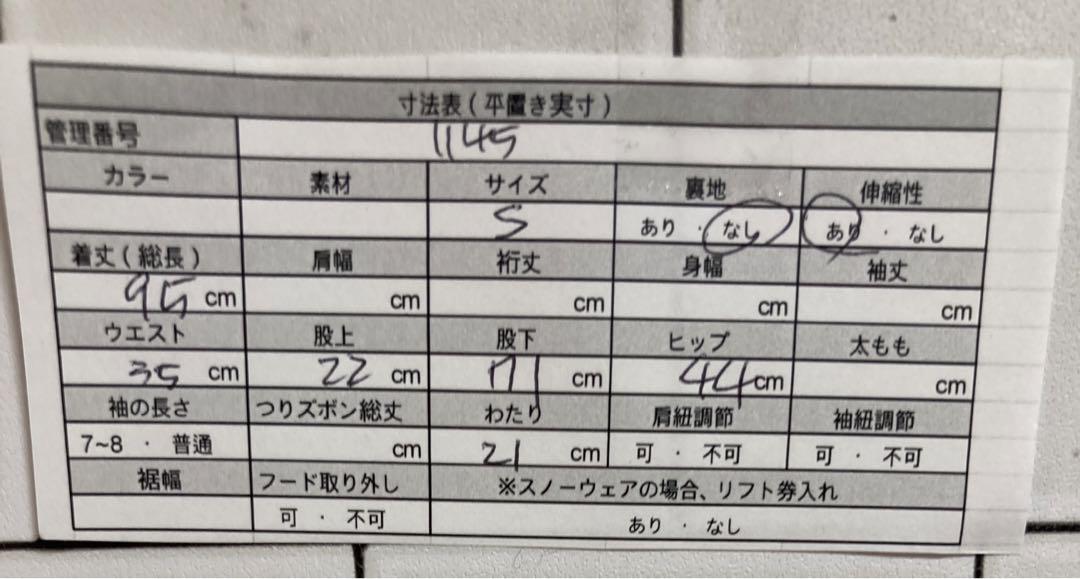 寸法表(平置き実寸)
管理番号 1145
カラー 素材 サイズ 裏地 伸縮性
S あり ・ なし あり ・ なし
着丈(総長) 肩幅 裄丈 身幅 袖丈
95 cm cm cm cm cm
ウエスト 股上 股下 ヒップ 太もも
35 cm 22 cm 71 cm 44 cm cm
袖の長さ つりズボン総丈 わたり 肩紐調節 袖紐調節
7~8 ・ 普通 cm 21 cm 可 ・ 不可 可 ・ 不可
裾幅 フード取り外し ※スノーウェアの場合、リフト券入れ
可 ・ 不可 あり ・ なし